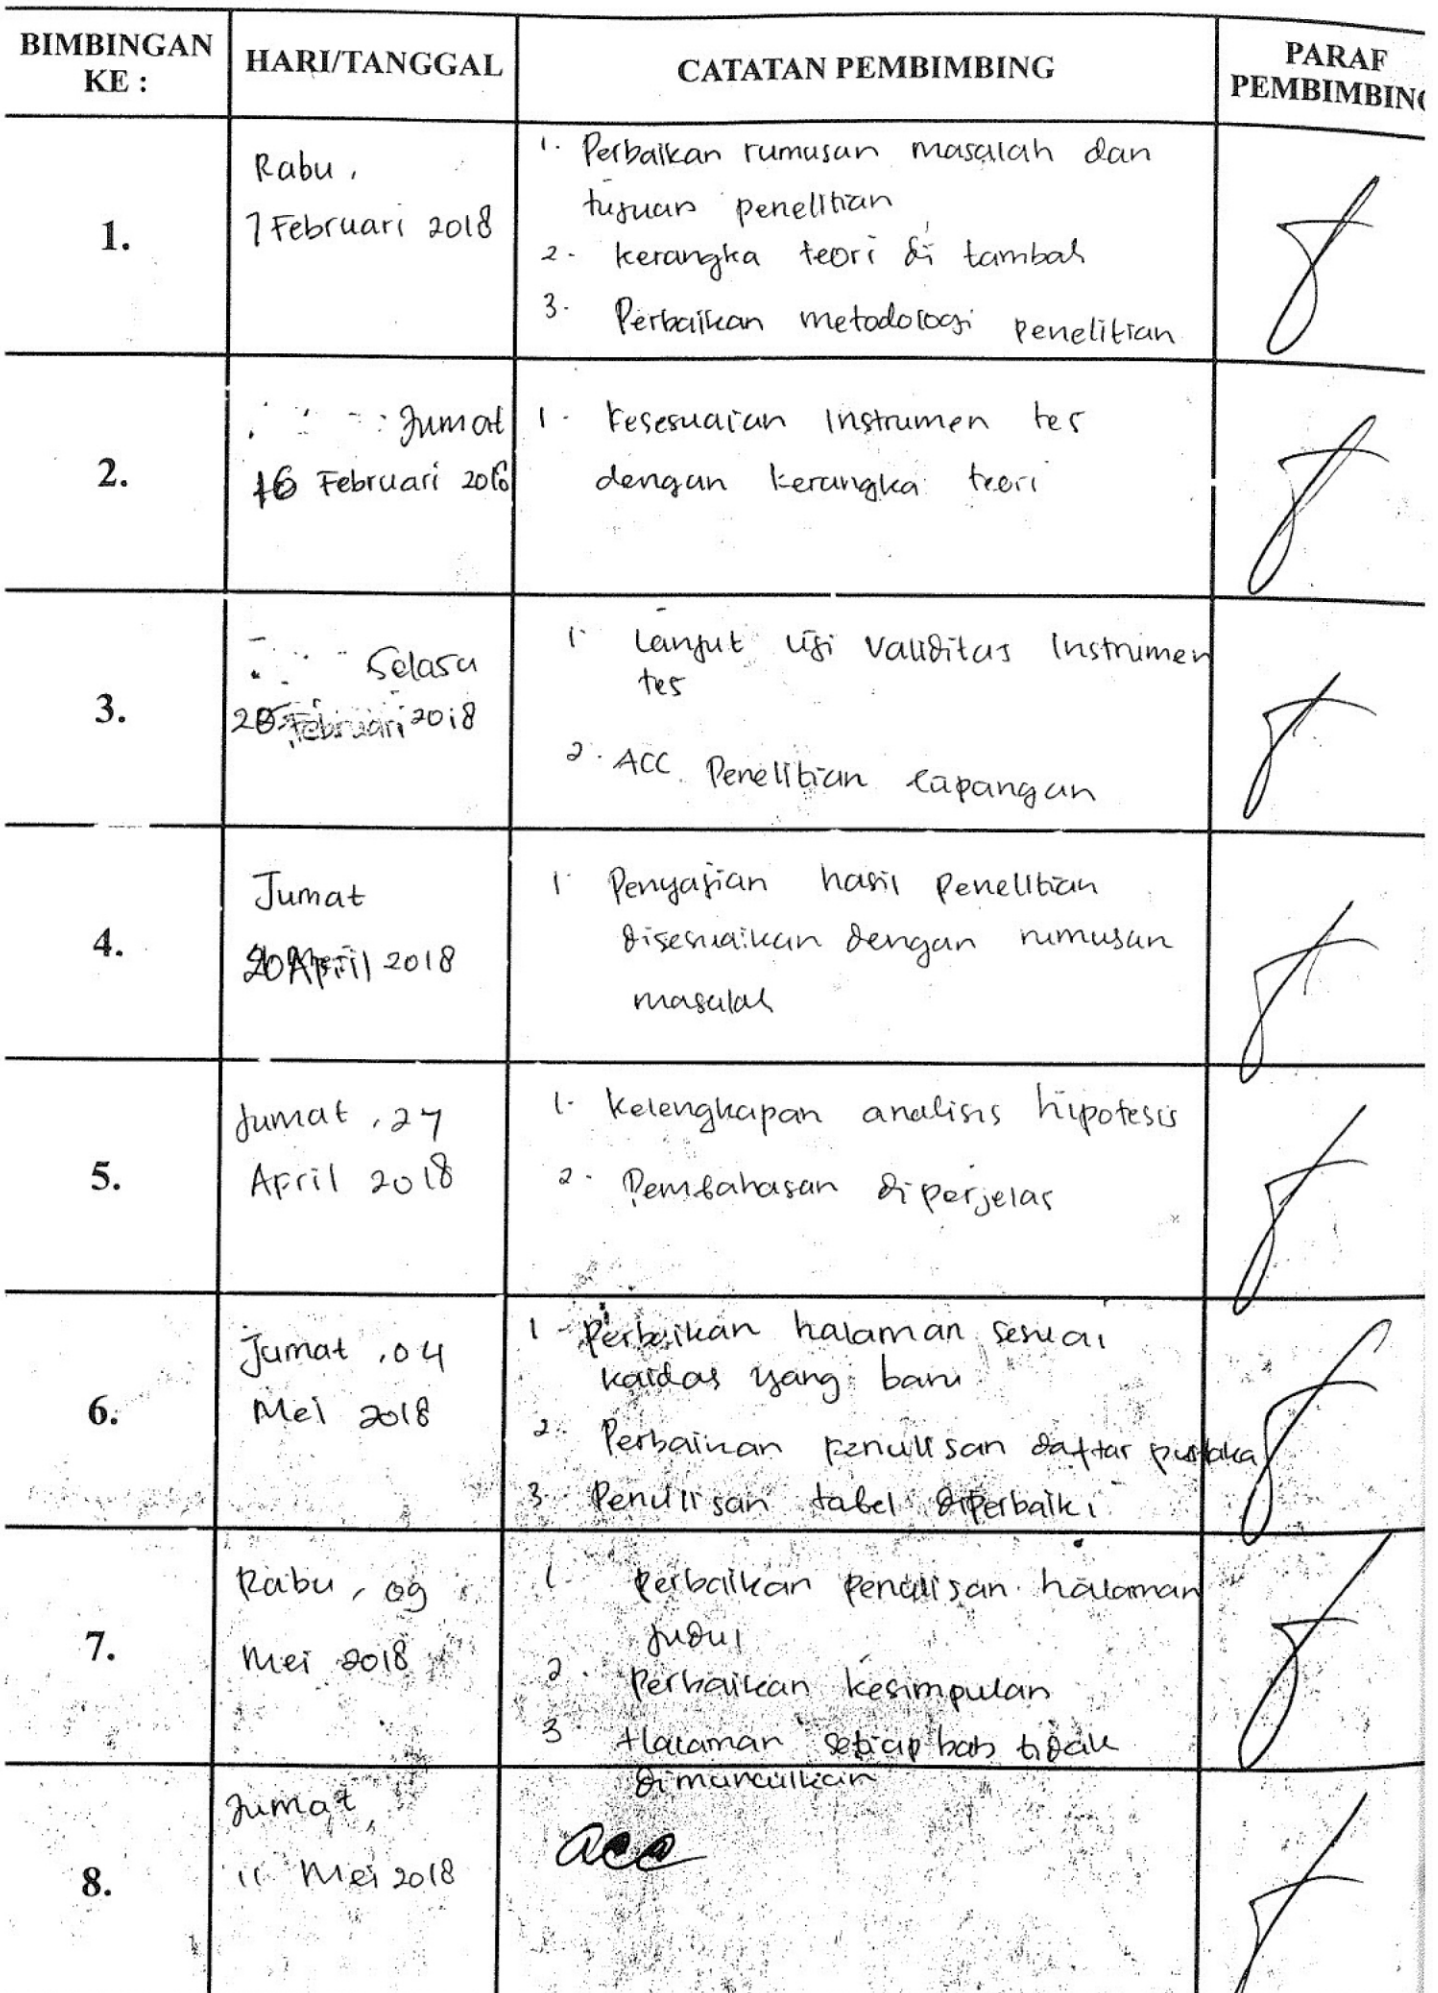 BIMBINGAN KE : HARI/TANGGAL CATATAN PEMBIMBING PARAF PEMBIMBING
1.
Rabu,
7 Februari 2018
1. Perbaikan rumusan masalah dan
tujuan penelitian
2. kerangka teori di tambah
3. Perbaikan metodologi penelitian
2.
Jumat
16 Februari 2018
1. Kesesuaian Instrumen tes
dengan kerangka teori
3.
Selasa
Februari 2018
1. Lanjut uji validitas Instrumen
tes
2. ACC Penelitian lapangan
4.
Jumat
20 April 2018
1. Penyajian hasil penelitian
disesuaikan dengan rumusan
masalah
5.
Jumat, 27
April 2018
1. Kelengkapan analisis hipotesis
2. Pembahasan diperjelas
6.
Jumat, 04
Mei 2018
1. Perbaikan halaman sesuai
kaidas yang baru
2. Perbaikan penulisan daftar pustaka
3. Penulisan tabel diperbaiki
7.
Rabu, 09
Mei 2018
1. Perbaikan penulisan halaman
judul
2. Perbaikan kesimpulan
3. Halaman setiap bab tidak
dimunculkan
8.
Jumat,
11 Mei 2018
acc